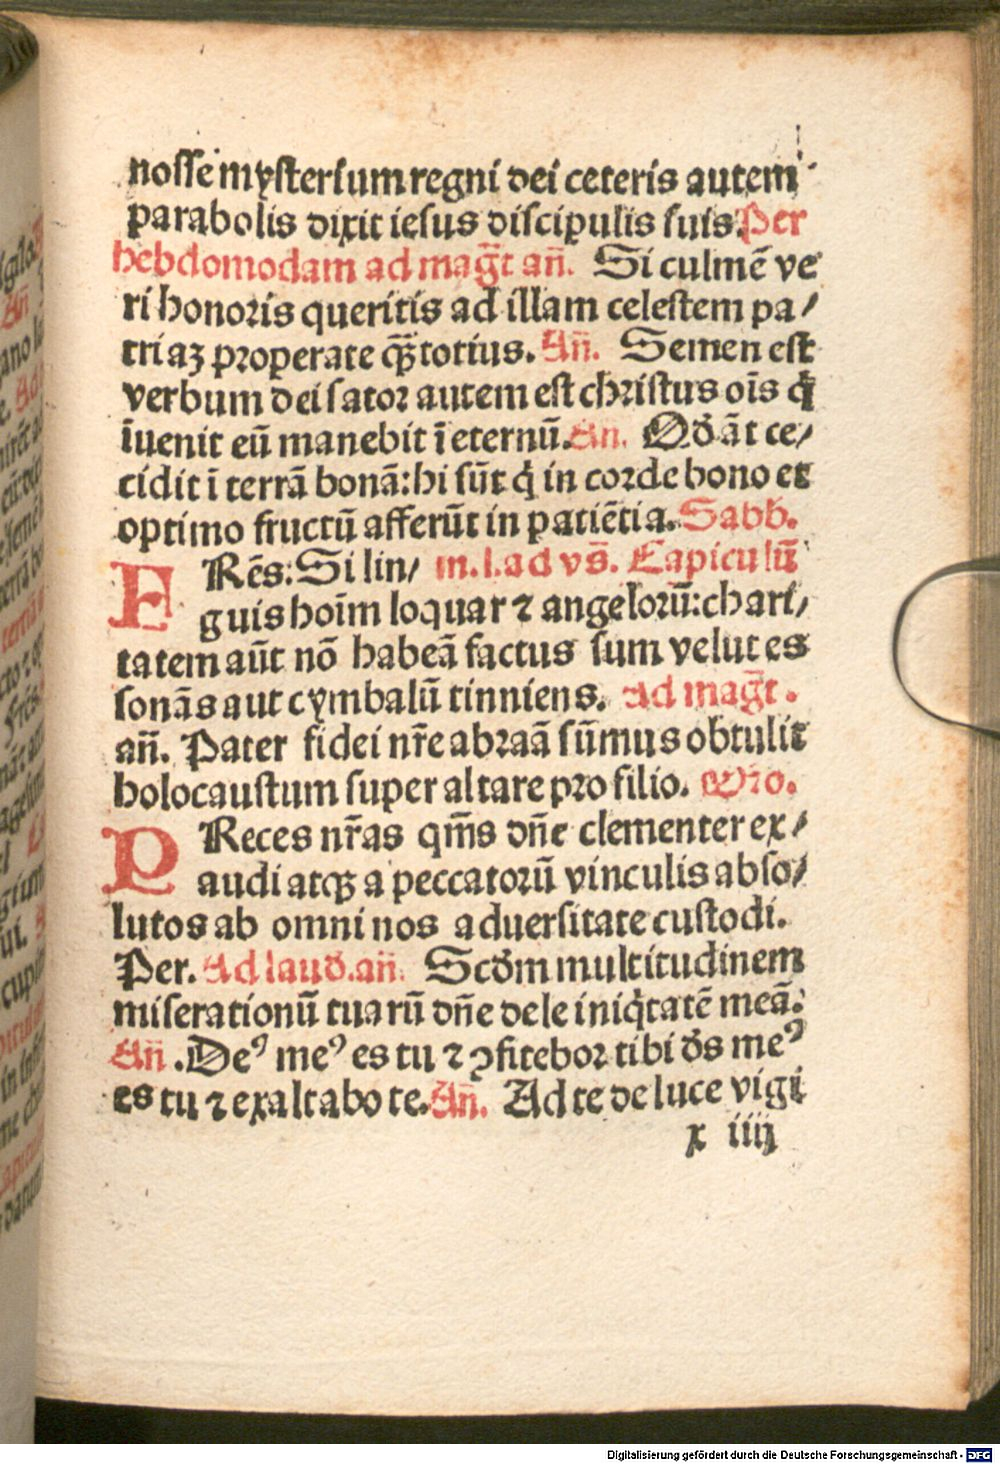 nosse mysterium regni dei ceteris autem
parabolis dixit iesus discipulis suis. Per
hebdomodam ad mag̃t añ. Si culmē ve
ri honoris queritis ad illam celestem pa/
triaꝫ properate qꝫ̃ totius. Añ. Semen est
verbum dei sator autem est christus oīs q̇
īuenit eū manebit ī eternū. An. Qđ āt ce/
cidit ī terrā bonā: hi sūt q̇ in corde bono et
optimo fructū afferūt in patiētia. Sabb.
FRēs: Si lin/ in. l. ad vs̄. Capiculū
guis hoīm loquar ⁊ angelorū: chari/
tatem aūt nō habeā factus sum velut es
sonās aut cymbalū tinniens. ad mag̃t.
añ. Pater fidei nr̄e abraā sūmus obtulit
holocaustum super altare pro filio. Oro.
PReces nr̄as qm̄s dñe clementer ex/
audi atqꝫ a peccatorū vinculis abso/
lutos ab omni nos aduersitate custodi.
Per. Ad lauđ. añ. Scđm multitudinem
miserationū tuarū dñe dele iniq̇tatē meā.
Añ. Deꝰ meꝰ es tu ⁊ ꝯfitebor tibi đs meꝰ
es tu ⁊ exaltabo te. Añ. Ad te de luce vigi
x iiij
Digitalisierung gefördert durch die Deutsche Forschungsgemeinschaft - DFG